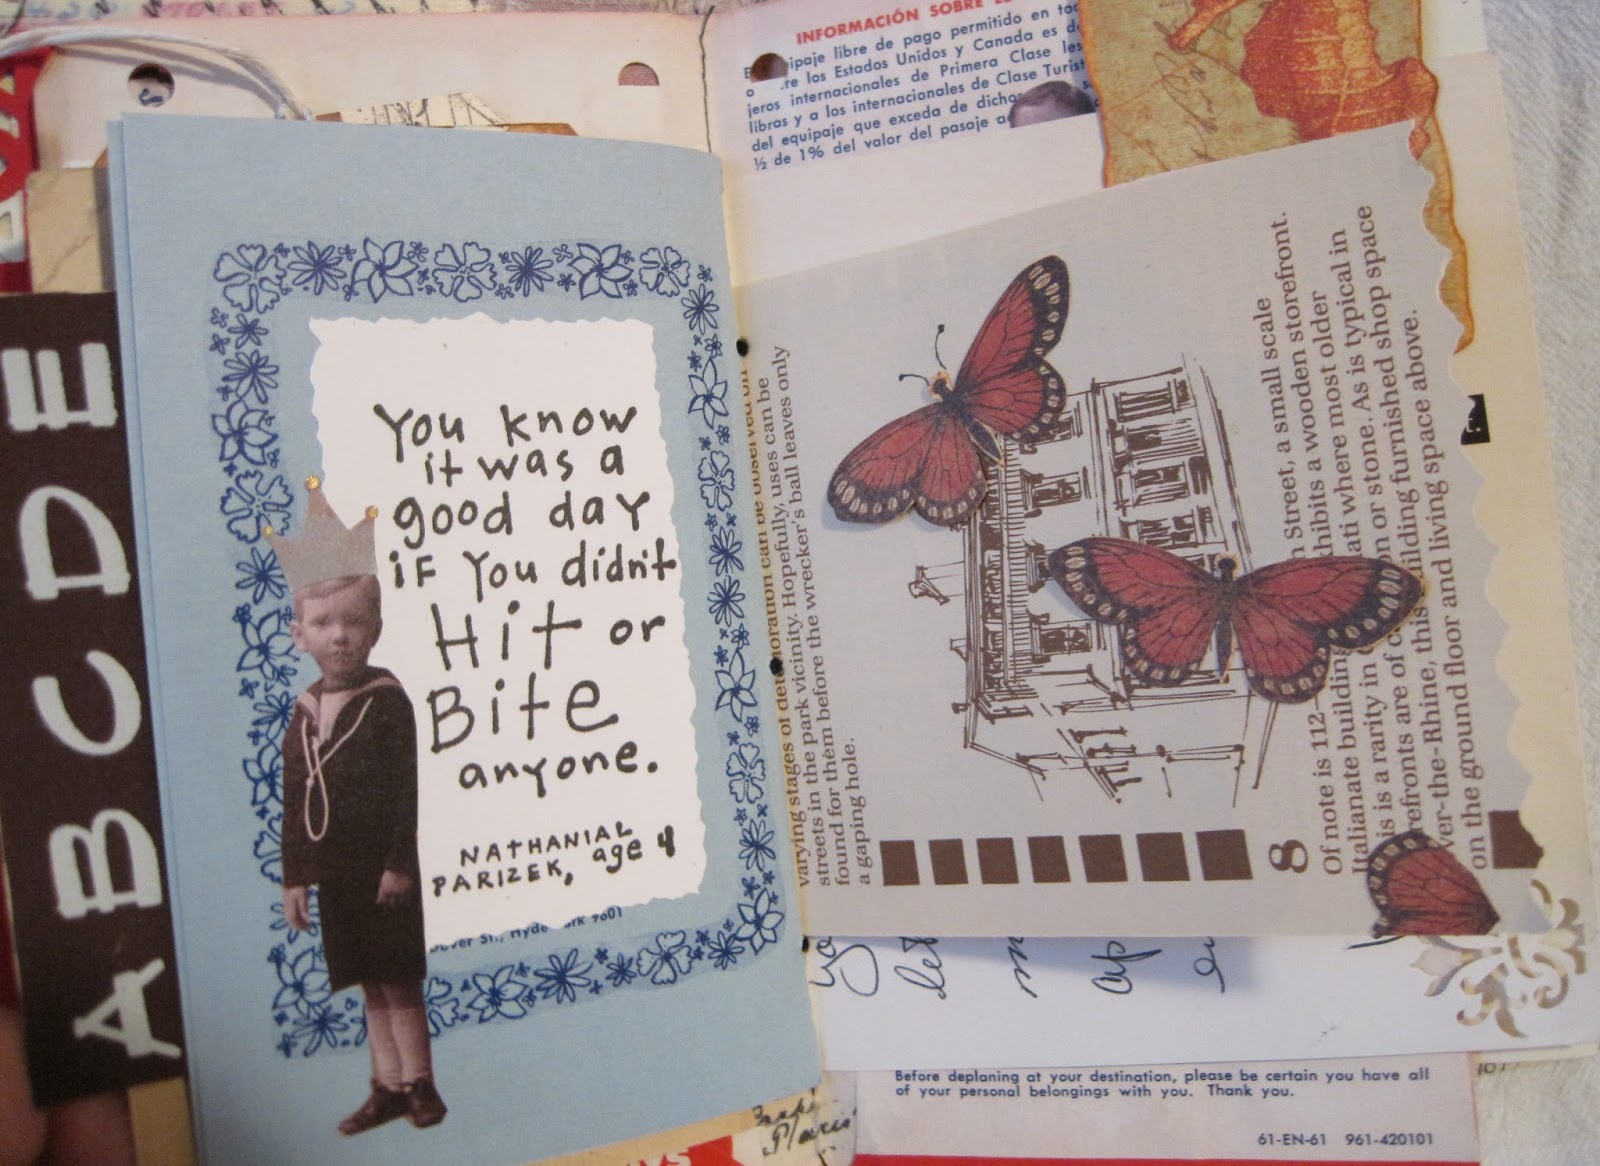 A B C D E
You know
it was a
good day
if you didn't
Hit or
Bite
anyone.
NATHANIAL
PARIZEK, age 4
Dover St., Hyde Park 9601
INFORMACIÓN SOBRE
equipaje libre de pago permitido en
los Estados Unidos y Canada es
jeros internacionales de Primera Clase
libras y a los internacionales de Clase
del equipaje que exceda de
½ de 1% del valor del pasaje
varying stages of deterioration can be observed on
streets in the park vicinity. Hopefully, uses can be
found for them before the wrecker's ball leaves only
a gaping hole.
8
Of note is 112– Street, a small scale
Italianate building exhibits a wooden storefront.
is is a rarity in where most older
refronts are of on or stone. As is typical in
ver-the-Rhine, this building furnished shop space
on the ground floor and living space above.
Before deplaning at your destination, please be certain you have all
of your personal belongings with you. Thank you.
61-EN-61 961-420101
Paris